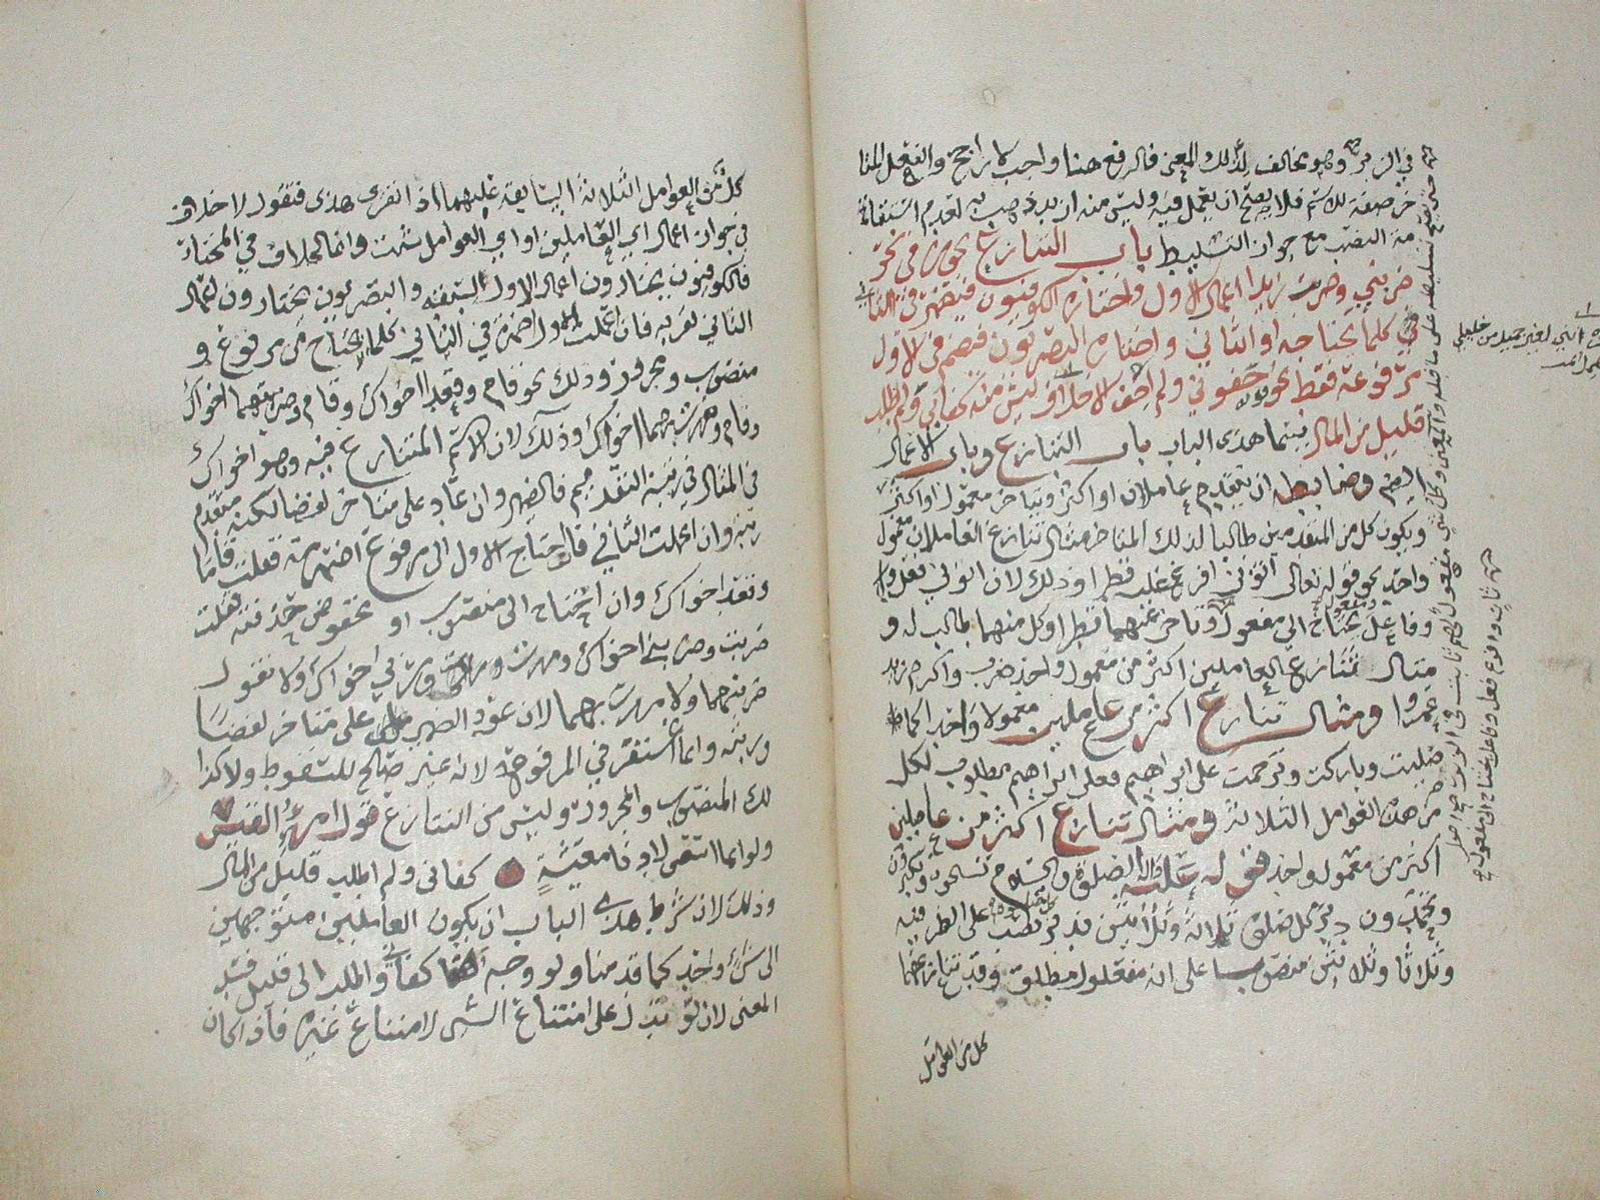 في الزبر وهو مخالف لذلك المعنى فالرفع هنا واجب لا راجح والفعل المتا
خر صفة للاسم فلا يصح ان يعمل فيه وليس منه ازيد ذهب به لعدم اقتضائه
النصب مع جواز التسليط باب التنازع يجوز في نحو
ضربني وضربت زيدا اعمال الاول واختاره الكوفيون فيضمر في الثاني
كلما يحتاجه او الثاني واختاره البصريون فيضمر في الاول
مرفوعه فقط نحو جفوني ولم اجف الاخلا وليس منه كفاني ولم اطلب
قليل من المال يسما هذى الباب باب التنازع وباب الاعمال
ايضم وضابطه ان يتقدم عاملان او اكثر ويتاخر معمول او اكثر
ويكون كل من المتقدمين طالبا لذلك المتاخر مثال تنازع العاملان معمولا
واحدا نحو قوله تعالى اتوني افرغ عليه قطرا وذلك لان اتوني فعل
وفاعل يحتاج الى مفعول وتاخر عنهما قطرا وكل منهما طالب له و
مثال تنازع العاملين اكثر من معمول واحد ضرب واكرم زيد
عمروا ومثال تنازع اكثر من عاملين معمولا واحدا كما
صليت وباركت وترحمت على ابراهيم فعلى ابراهيم مطلوب لكل
من هذه العوامل الثلاثة ومثال تنازع اكثر من عاملين
اكثر من معمول واحد قوله عليه الصلوة والسلام تسبحون وتكبرون
وتحمدون دبر كل صلوة ثلاثا وثلاثين فدبر نصب على الظرفيه
وثلاثا وثلاثين منصوب على انه مفعول مطلق وقد تنازعهما
كل من العوامل
كل من العوامل الثلاثة السابقة عليهما اذا تقرر هذى فنقول لا خلاف
في جواز اعمال اي العاملين او اي العوامل شئت وانما الخلاف في المختار
فالكوفيون يختارون اعمال الاول لسبقه والبصريون يختارون اعمال
الثاني لقربه فان اعملت الاول اضمرت في الثاني كلما يحتاج من مرفوع و
منصوب ومجرور وذلك نحو قام وقعدا اخواك وقام وضربتهما اخواك
وقام ومررت بهما اخواك وذلك لان الاسم المتنازع فيه وهو اخواك
في المثال في رتبة التقديم فالضمير وان عاد على متاخر لفضا لكنه متقدم
رتبه وان اعملت الثاني فان احتاج الاول الى مرفوع اضمرته فقلت قاما
وقعد اخواك وان احتاج الى منصوب او مخفوض حذفته فقلت
ضربت وضربني اخواك ومررت ومر بي اخواك ولا تقول
ضربتهما ولا مررت بهما لان عود الضمير على متاخر لفضا
ورتبه وانما اغتفر في المرفوع لانه غير صالح للسقوط ولا كذا
لك المنصوب والمجرور وليس من التنازع قول امرؤ القيس
ولو انما اسعى لادنا معيشة كفاني ولم اطلب قليل من المال
وذلك لان شرط هذى الباب ان يكون العاملين متوجهين
الى شئ واحد كما قدمنا ولو وجه كفاني واطلب الى قليل فسد
المعنى لان لو تدل على امتناع الشى لامتناع غيره فاذا كان